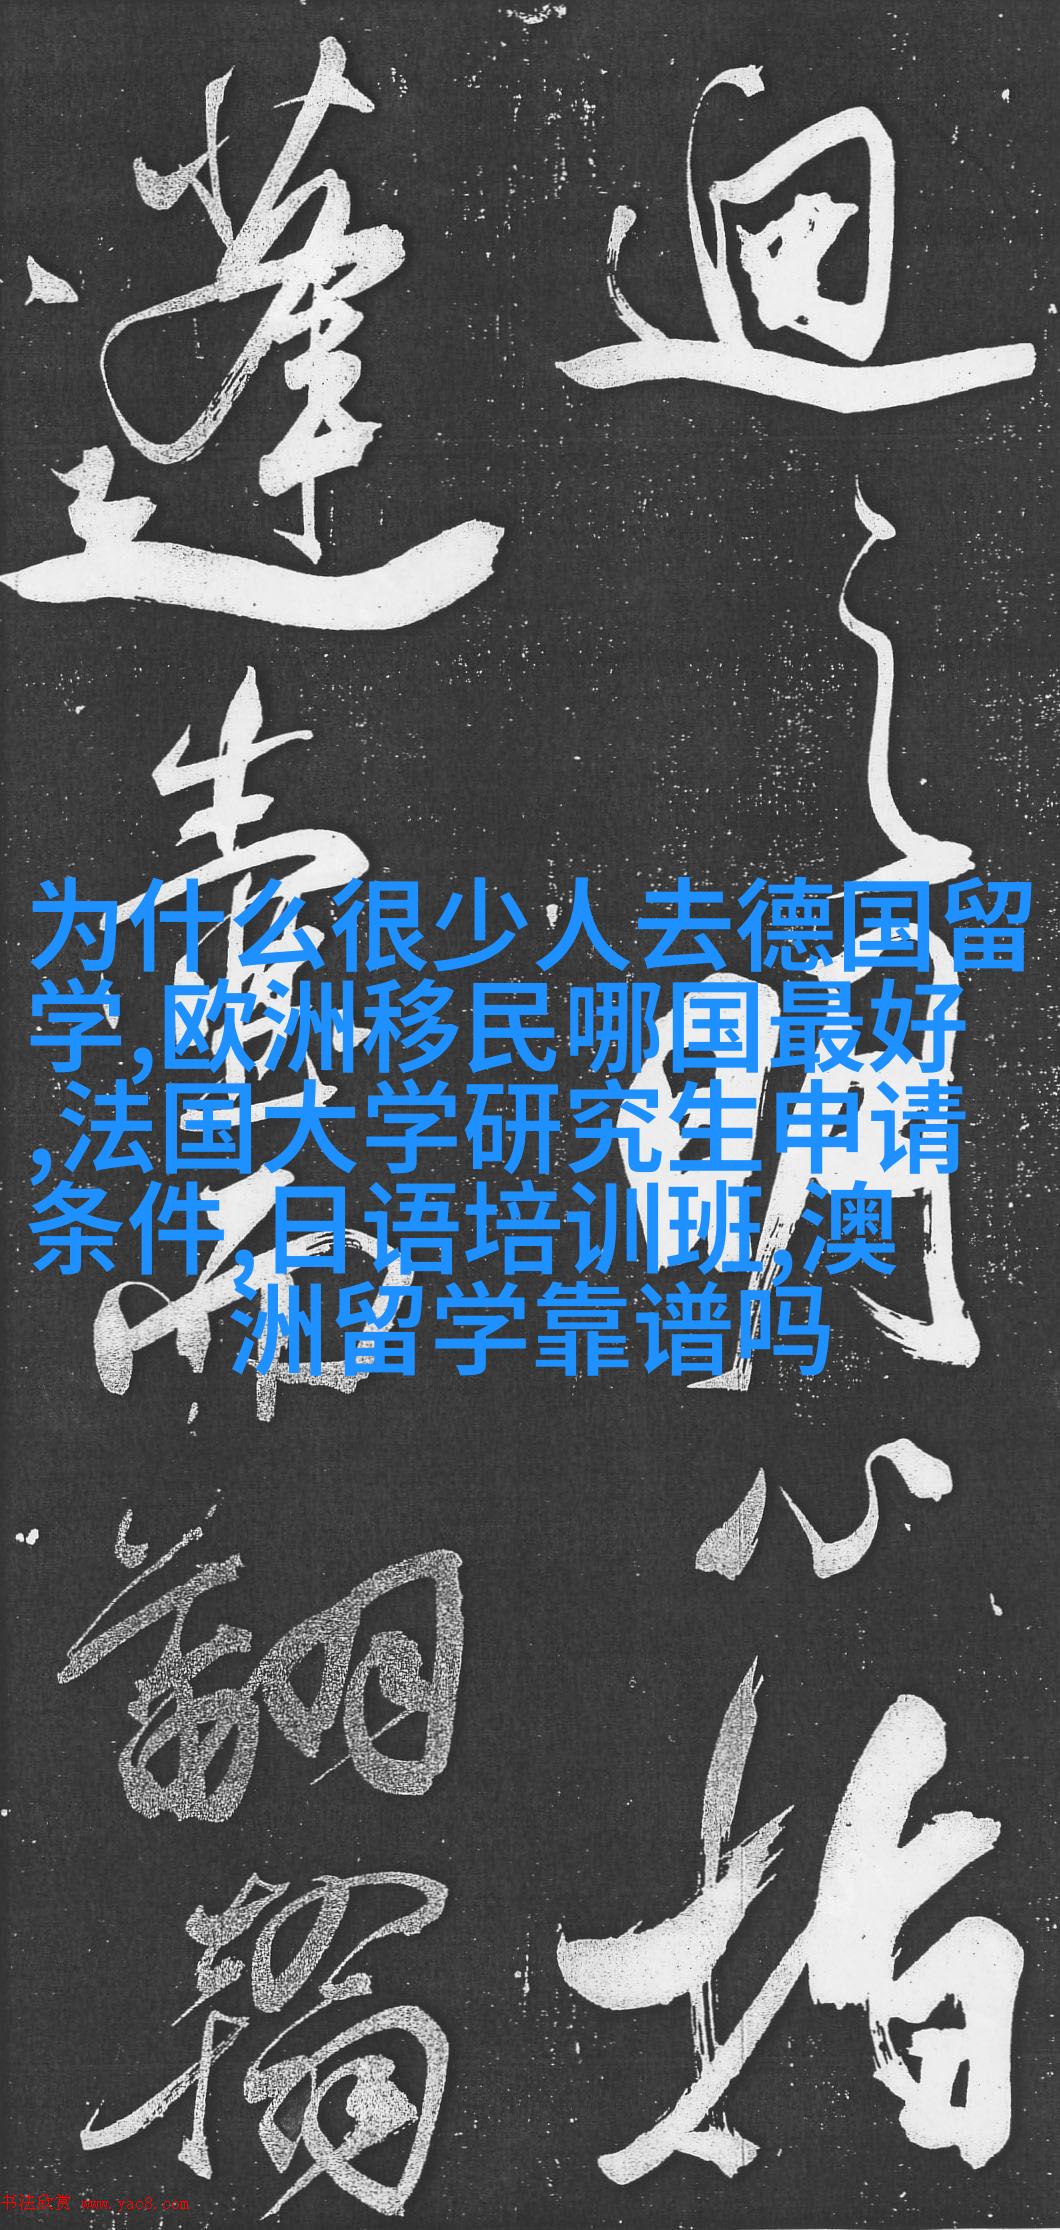 为什么很少人去德国留
学,欧洲移民哪国最好
,法国大学研究生申请
条件,日语培训班,澳
洲留学靠谱吗
迴之心指
蓬
书法欣赏 www.yac8.com